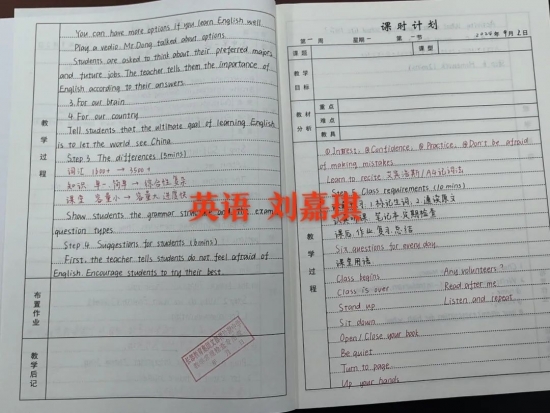 You can have more options if you learn English well.
Play a vedio. Mr. Dong talked about options.
Students are asked to think about their preferred majors
and furture jobs. The teacher tells them the importance of
English according to their answers.
3. For our brain
4. For our country
Tell students that the ultimate goal of learning English
is to let the world see China.
Step 3 The differences (5mins)
词汇 1600 → 3500
知识 单一,简单 → 综合性,复杂
课堂 容量小 → 容量大,进度快
Show students the grammar structure and the exam
question types.
Step 4 Suggestions for students (8mins)
First, the teacher tells students do not feel afraid of
English. Encourage students to try their best.
教学过程
布置作业
教学后记
课时计划
第一周 星期一 第一节 2024年9月2日
课题 课型
教学目标
教材分析
重点
难点
教具
① Interest, ② Confidence, ③ Practice, ④ Don't be afraid
of making mistakes.
Learn to recite 艾宾浩斯/A4记词法
Step 5 Class requirements (10 mins)
笔记本 定期检查
课后 作业 复习 总结
Six questions for every day.
课堂用语
Class begins. Any volunteers?
Class is over. Read after me
Stand up Listen and repeat
Sit down
Open / Close your book
Be quiet
Turn to page
Up your hands
教学过程
英语 刘嘉琪